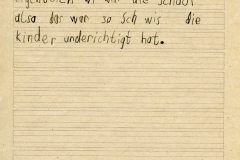 die school
also das war so Sch wis die
kinder underichtigt hat.